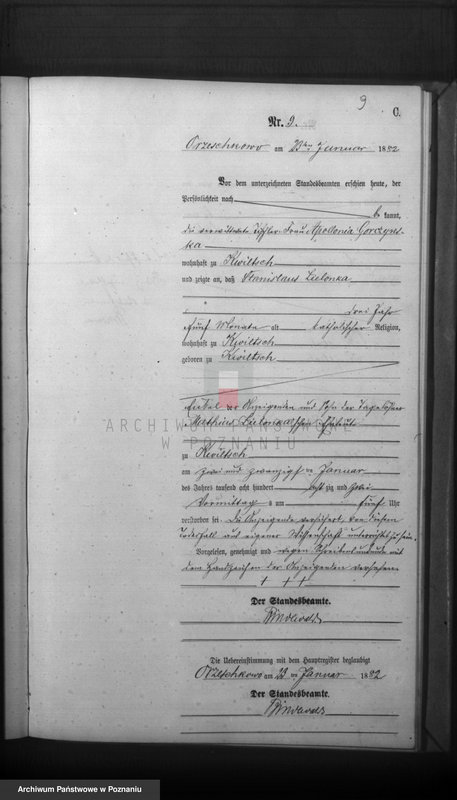 9
C.
Nr. 9.
Orzeschkowo am 23ten Januar 1882
Vor dem unterzeichneten Standesbeamten erschien heute, der
Persönlichkeit nach
be kannt,
die verwittwete Tischler Frau Apollonia Gorczyns-
ka
wohnhaft zu Kwiltsch
und zeigte an, daß Stanislaus Zielonka
drei Jahr
fünf Monate alt katholischer Religion,
wohnhaft zu Kwiltsch
geboren zu Kwiltsch
Enkel der Anzeigenden und Sohn der Tagelöhner
Mathias Zielonkaschen Eheleute
ARCHIWUM PAŃSTWOWE
W POZNANIU
zu Kwiltsch
am zwei und zwanzigsten Januar
des Jahres tausend acht hundert achtzig und zwei
Vormittags um fünf Uhr
verstorben sei. Die Anzeigende versichert, von diesem
Todesfall aus eigener Wissenschaft unterrichtet zu sein.
Vorgelesen, genehmigt und wegen Schreibensunkunde mit
dem Handzeichen der Anzeigenden versehen
+ + +
Der Standesbeamte.
Die Uebereinstimmung mit dem Hauptregister beglaubigt
Orzeschkowo am 23 ten Januar 1882
Der Standesbeamte.
Archiwum Państwowe w Poznaniu